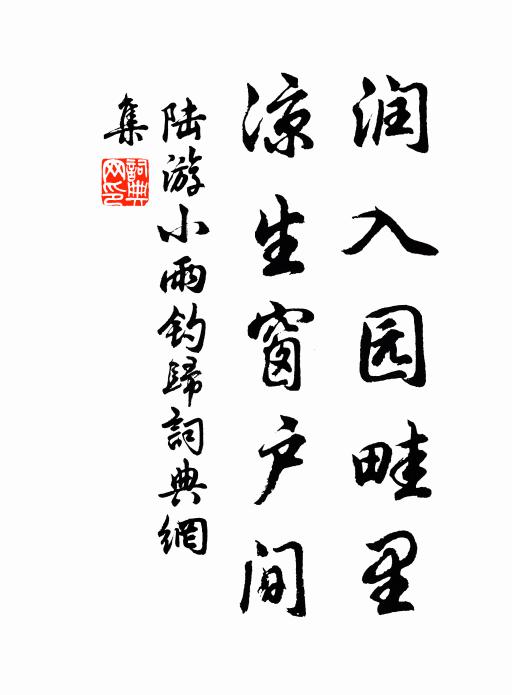 润入园畦里
凉生窗户间
陆游小雨钓歸詞典網
集
詞典网印